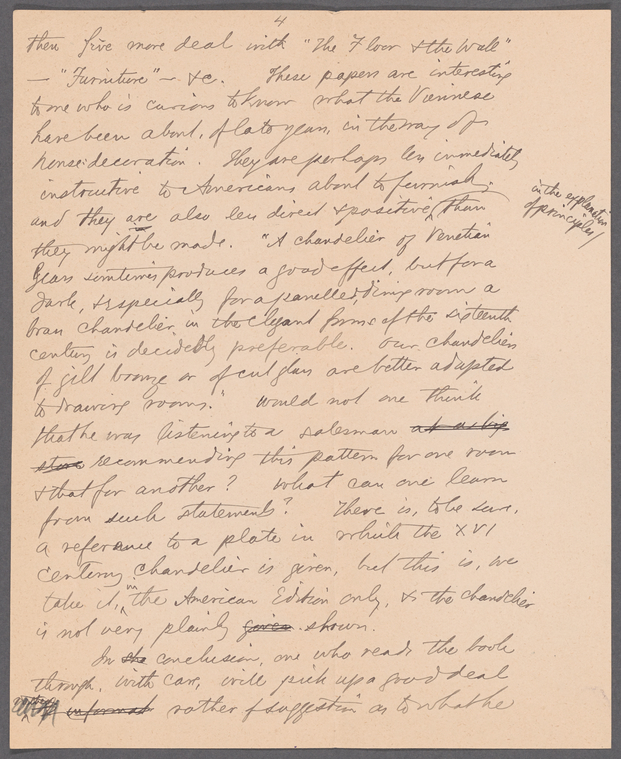 4
then five more deal with "The Floor & the Wall"
— "Furniture" — &c. These papers are interesting
to one who is curious to know what the Viennese
have been about, of late years, in the way of
house decoration. They are perhaps less immediately
instructive to Americans about to furnish,
and they are also less direct & positive, than
in the explanation
of principles/
they might be made. "A chandelier of Venetian
glass sometimes produces a good effect, but for a
dark, & especially for a panelled, dining room a
bran chandelier in the elegant forms of the sixteenth
century is decidedly preferable. Our chandeliers
of gilt bronze or of cut glass are better adapted
to drawing rooms." Would not one think
that he was listening to a salesman at a big
store recommending this pattern for one room
& that for another? What can one learn
from such statements? There is, to be sure,
a reference to a plate in which the XVI
century chandelier is given, but this is, we
take it, in the American Edition only, & the chandelier
is not very plainly given shown.
In the conclusion, one who reads the book
through, with care, will pick up a good deal
informat rather of suggestion as to what he